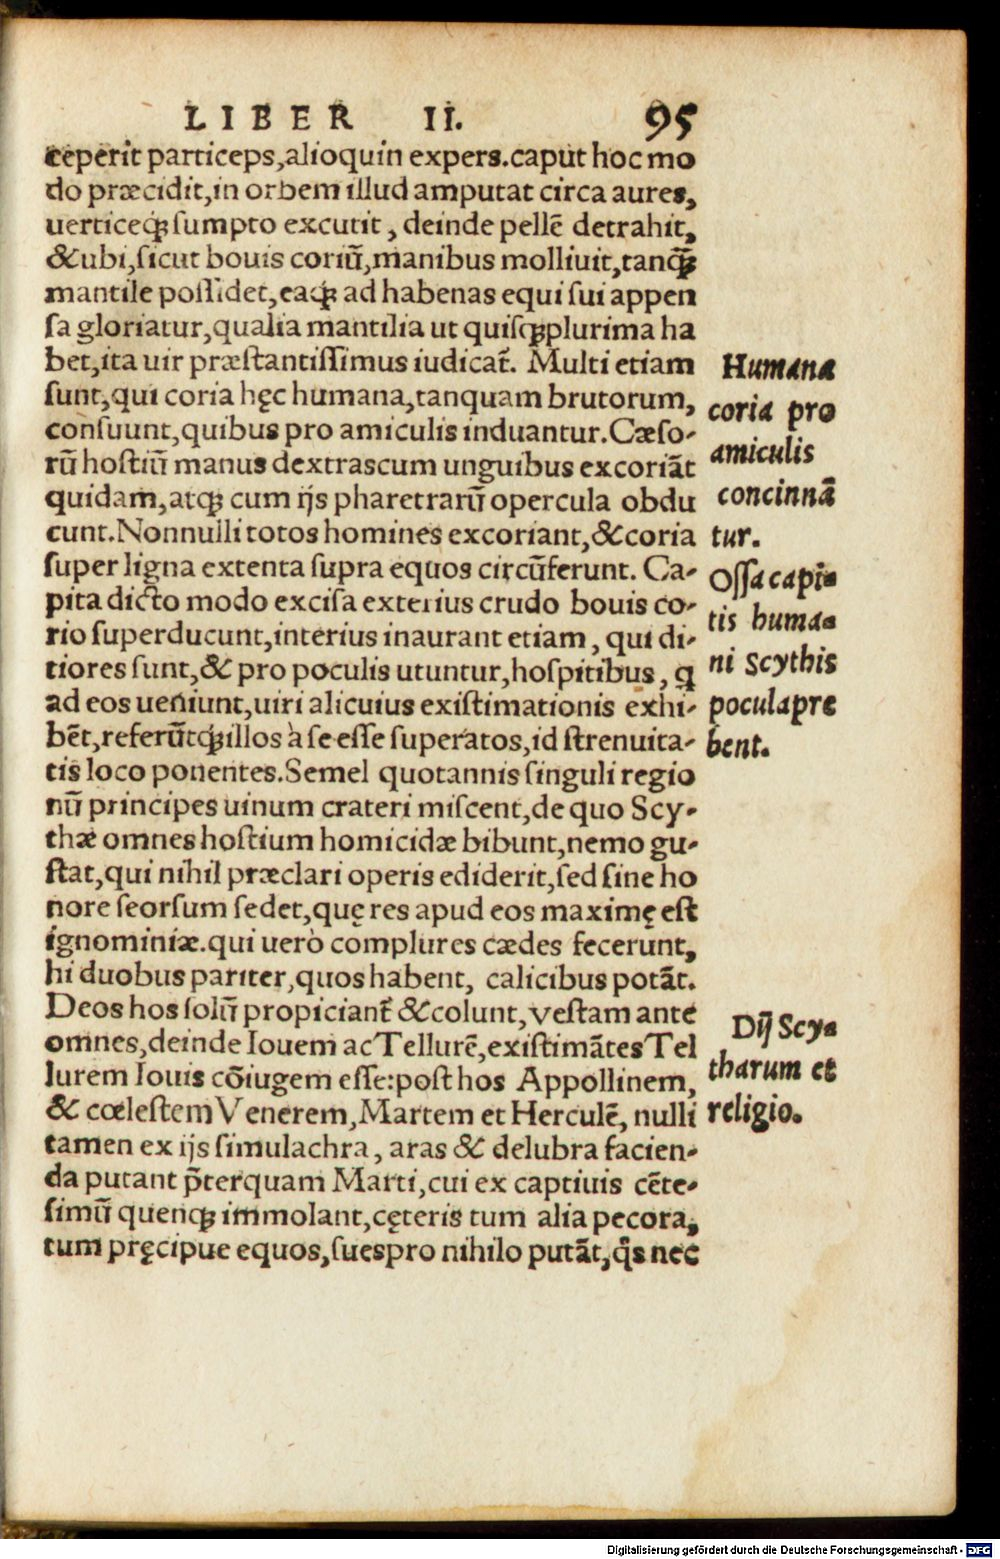 LIBER II. 95
ceperit particeps,alioquin expers.caput hoc mo
do præcidit,in orbem illud amputat circa aures,
uerticeq́ꝫ ſumpto excutit, deinde pellē detrahit,
&ubi,ſicut bouis coriū,manibus molliuit,tanq̄ꝫ
mantile poſſidet,eaqꝫ ad habenas equi ſui appen
ſa gloriatur,qualia mantilia ut quiſqꝫplurima ha
bet,ita uir præſtantiſſimus iudicat᷑. Multi etiam
ſunt,qui coria hęc humana,tanquam brutorum,
conſuunt,quibus pro amiculis induantur.Cæſo-
rū hoſtiū manus dextrascum unguibus excoriāt
quidam,atqꝫ cum ijs pharetrarū opercula obdu
cunt.Nonnulli totos homines excoriant,&coria
super ligna extenta ſupra equos circūferunt. Ca-
pita dicto modo exciſa exterius crudo bouis co-
rio ſuperducunt,interius inaurant etiam, qui di-
tiores ſunt,& pro poculis utuntur,hoſpitibus, q
ad eos ueniunt,uiri alicuius exiſtimationis exhi-
bēt,referūtqꝫillos à ſe eſſe ſuperatos,id ſtrenuita-
tis loco ponentes.Semel quotannis ſinguli regio
nū principes uinum crateri miſcent,de quo Scy-
thæ omnes hoſtium homicidæ bibunt,nemo gu-
ſtat,qui nihil præclari operis ediderit,ſed ſine ho
nore ſeorſum ſedet,quę res apud eos maximę eſt
ignominiæ.qui uerò complures cædes fecerunt,
hi duobus pariter,quos habent, calicibus potāt.
Deos hos ſolū propiciant᷑ &colunt,veſtam ante
omnes,deinde Iouem ac Tellurē,exiſtimātes Tel
lurem Iouis cōiugem eſſe:poſt hos Appollinem,
& cœleſtem Venerem,Martem et Herculē, nulli
tamen ex ijs ſimulachra, aras & delubra facien-
da putant p̄terquam Marti,cui ex captiuis cēte-
ſimū quenqꝫ immolant,cęteris tum alia pecora,
tum pręcipue equos,ſuespro nihilo putāt,q̄s nec
Humana
coria pro
amiculis
concinnā
tur.
Oſſa capi-
tis huma-
ni Scythis
pocula pre
bent.
Dij Scy-
tharum et
religio.
Digitalisierung gefördert durch die Deutsche Forschungsgemeinschaft - DFG